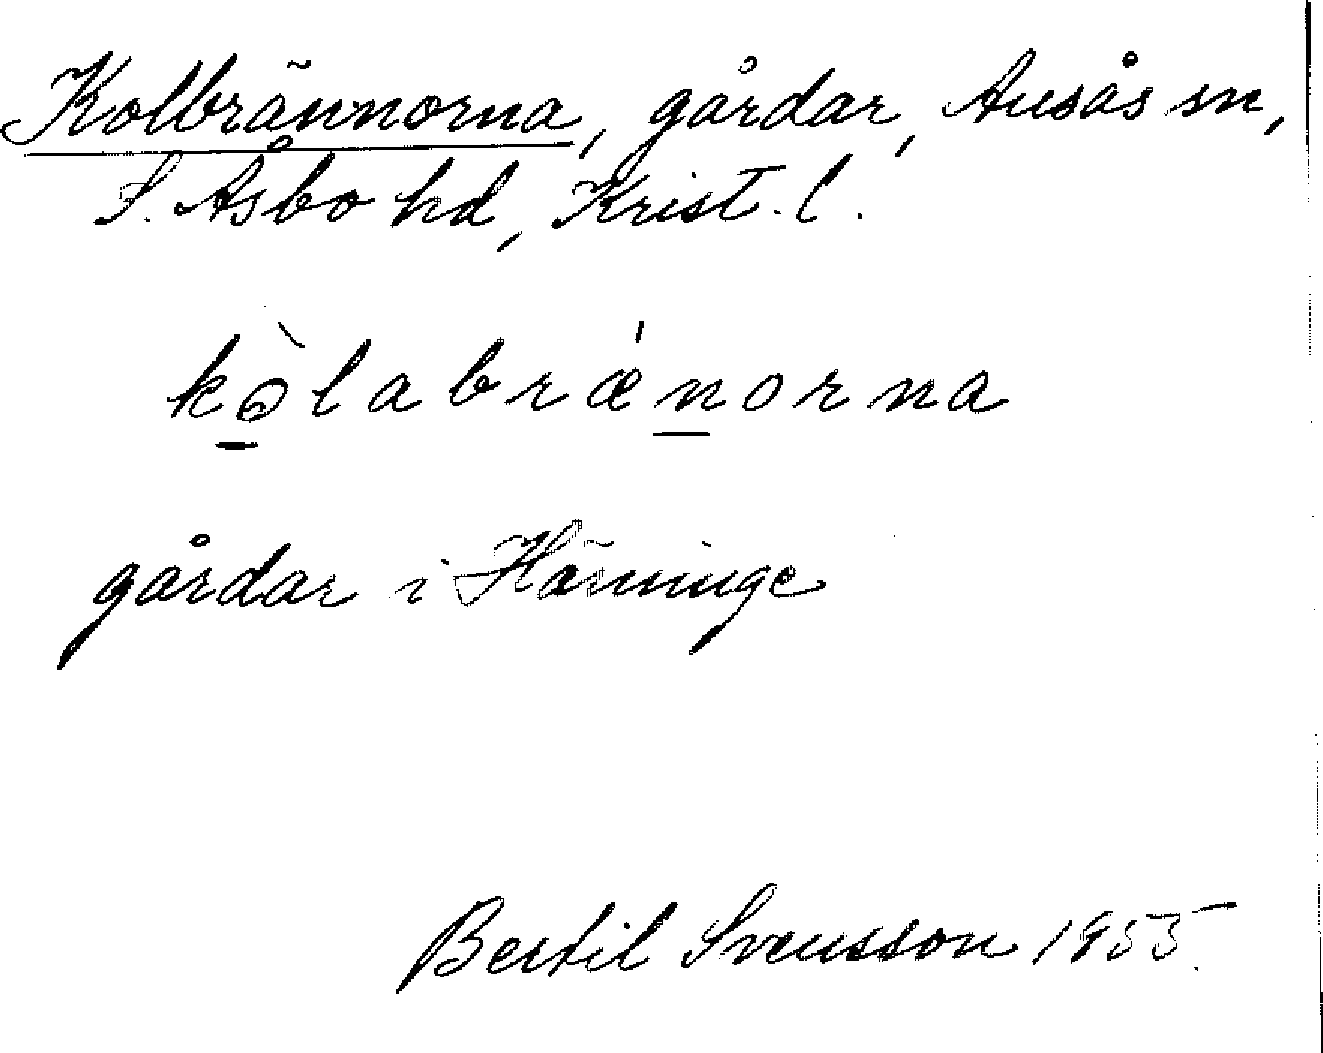 Kolbrännorna, gårdar, Ausås sn,
S. Åsbo hd, Krist. l.
kòlabrǽnorna
gårdar i Hänninge
Bertil Svensson 1955.